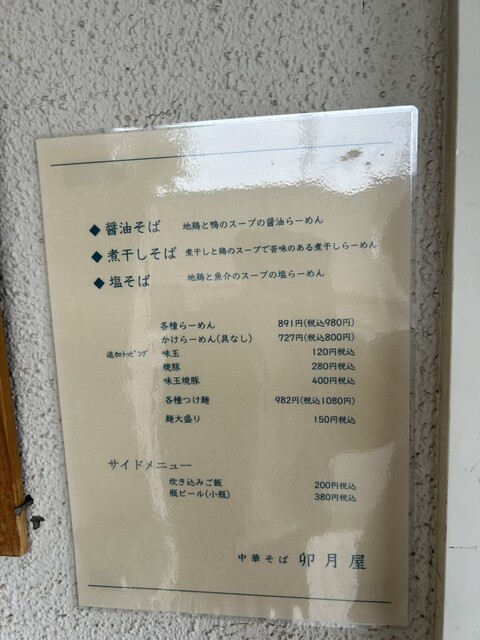 ◆醤油そば 地鶏と鴨のスープの醤油らーめん
◆煮干しそば 煮干しと鶏のスープで苦味のある煮干しらーめん
◆塩そば 地鶏と魚介のスープの塩らーめん
各種らーめん 891円(税込980円)
かけらーめん(具なし) 727円(税込800円)
追加トッピング 味玉 120円税込
焼豚 280円税込
味玉焼豚 400円税込
各種つけ麺 982円(税込1080円)
麺大盛り 150円税込
サイドメニュー
炊き込みご飯 200円税込
瓶ビール(小瓶) 380円税込
中華そば 卯月屋